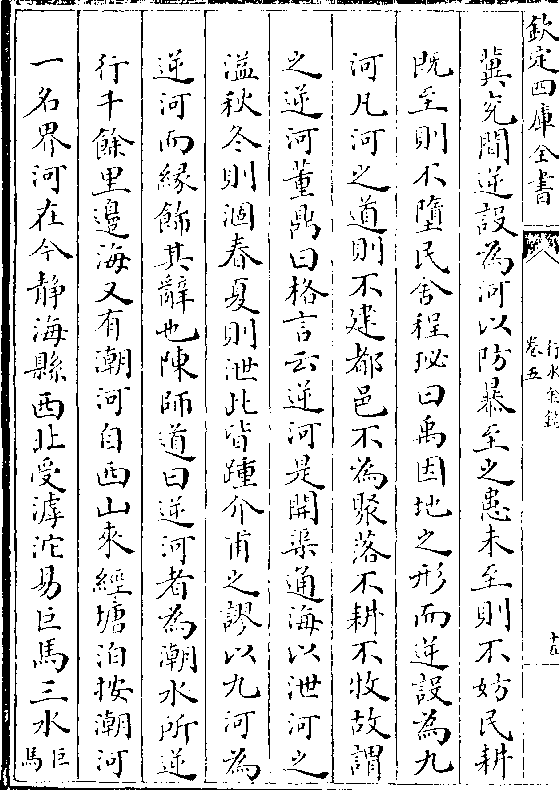 欽定四庫全書
行水金鑑
卷五
十五
冀兖間逆設為河以防暴至之患未至則不妨民耕
既至則不墮民舍程珌曰禹因地之形而逆設為九
河凡河之道則不建都邑不為聚落不耕不牧故謂
之逆河董鼎曰格言云逆河是開渠通海以泄河之
溢秋冬則涸春夏則泄此皆踵介甫之謬以九河為
逆河而緣飾其辭也陳師道曰逆河者為潮水所逆
行千餘里邊海又有潮河自西山來經塘泊按潮河
一名界河在今静海縣西北受滹沱易巨馬三水巨
馬